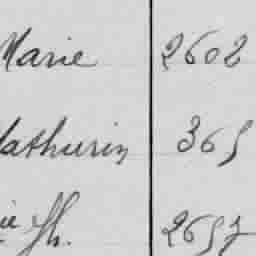 Marie 2602
Mathurin 365
ie Th. 2657